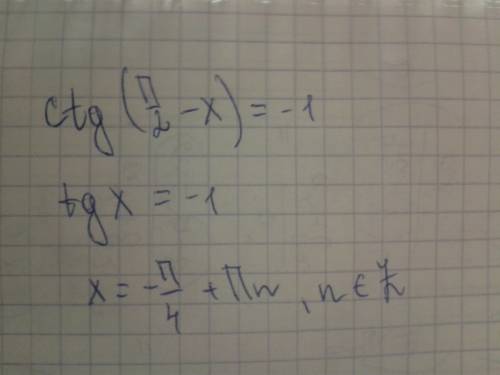 ctg(π/2 - x) = -1
tg x = -1
x = -π/4 + πn, n ∈ Z